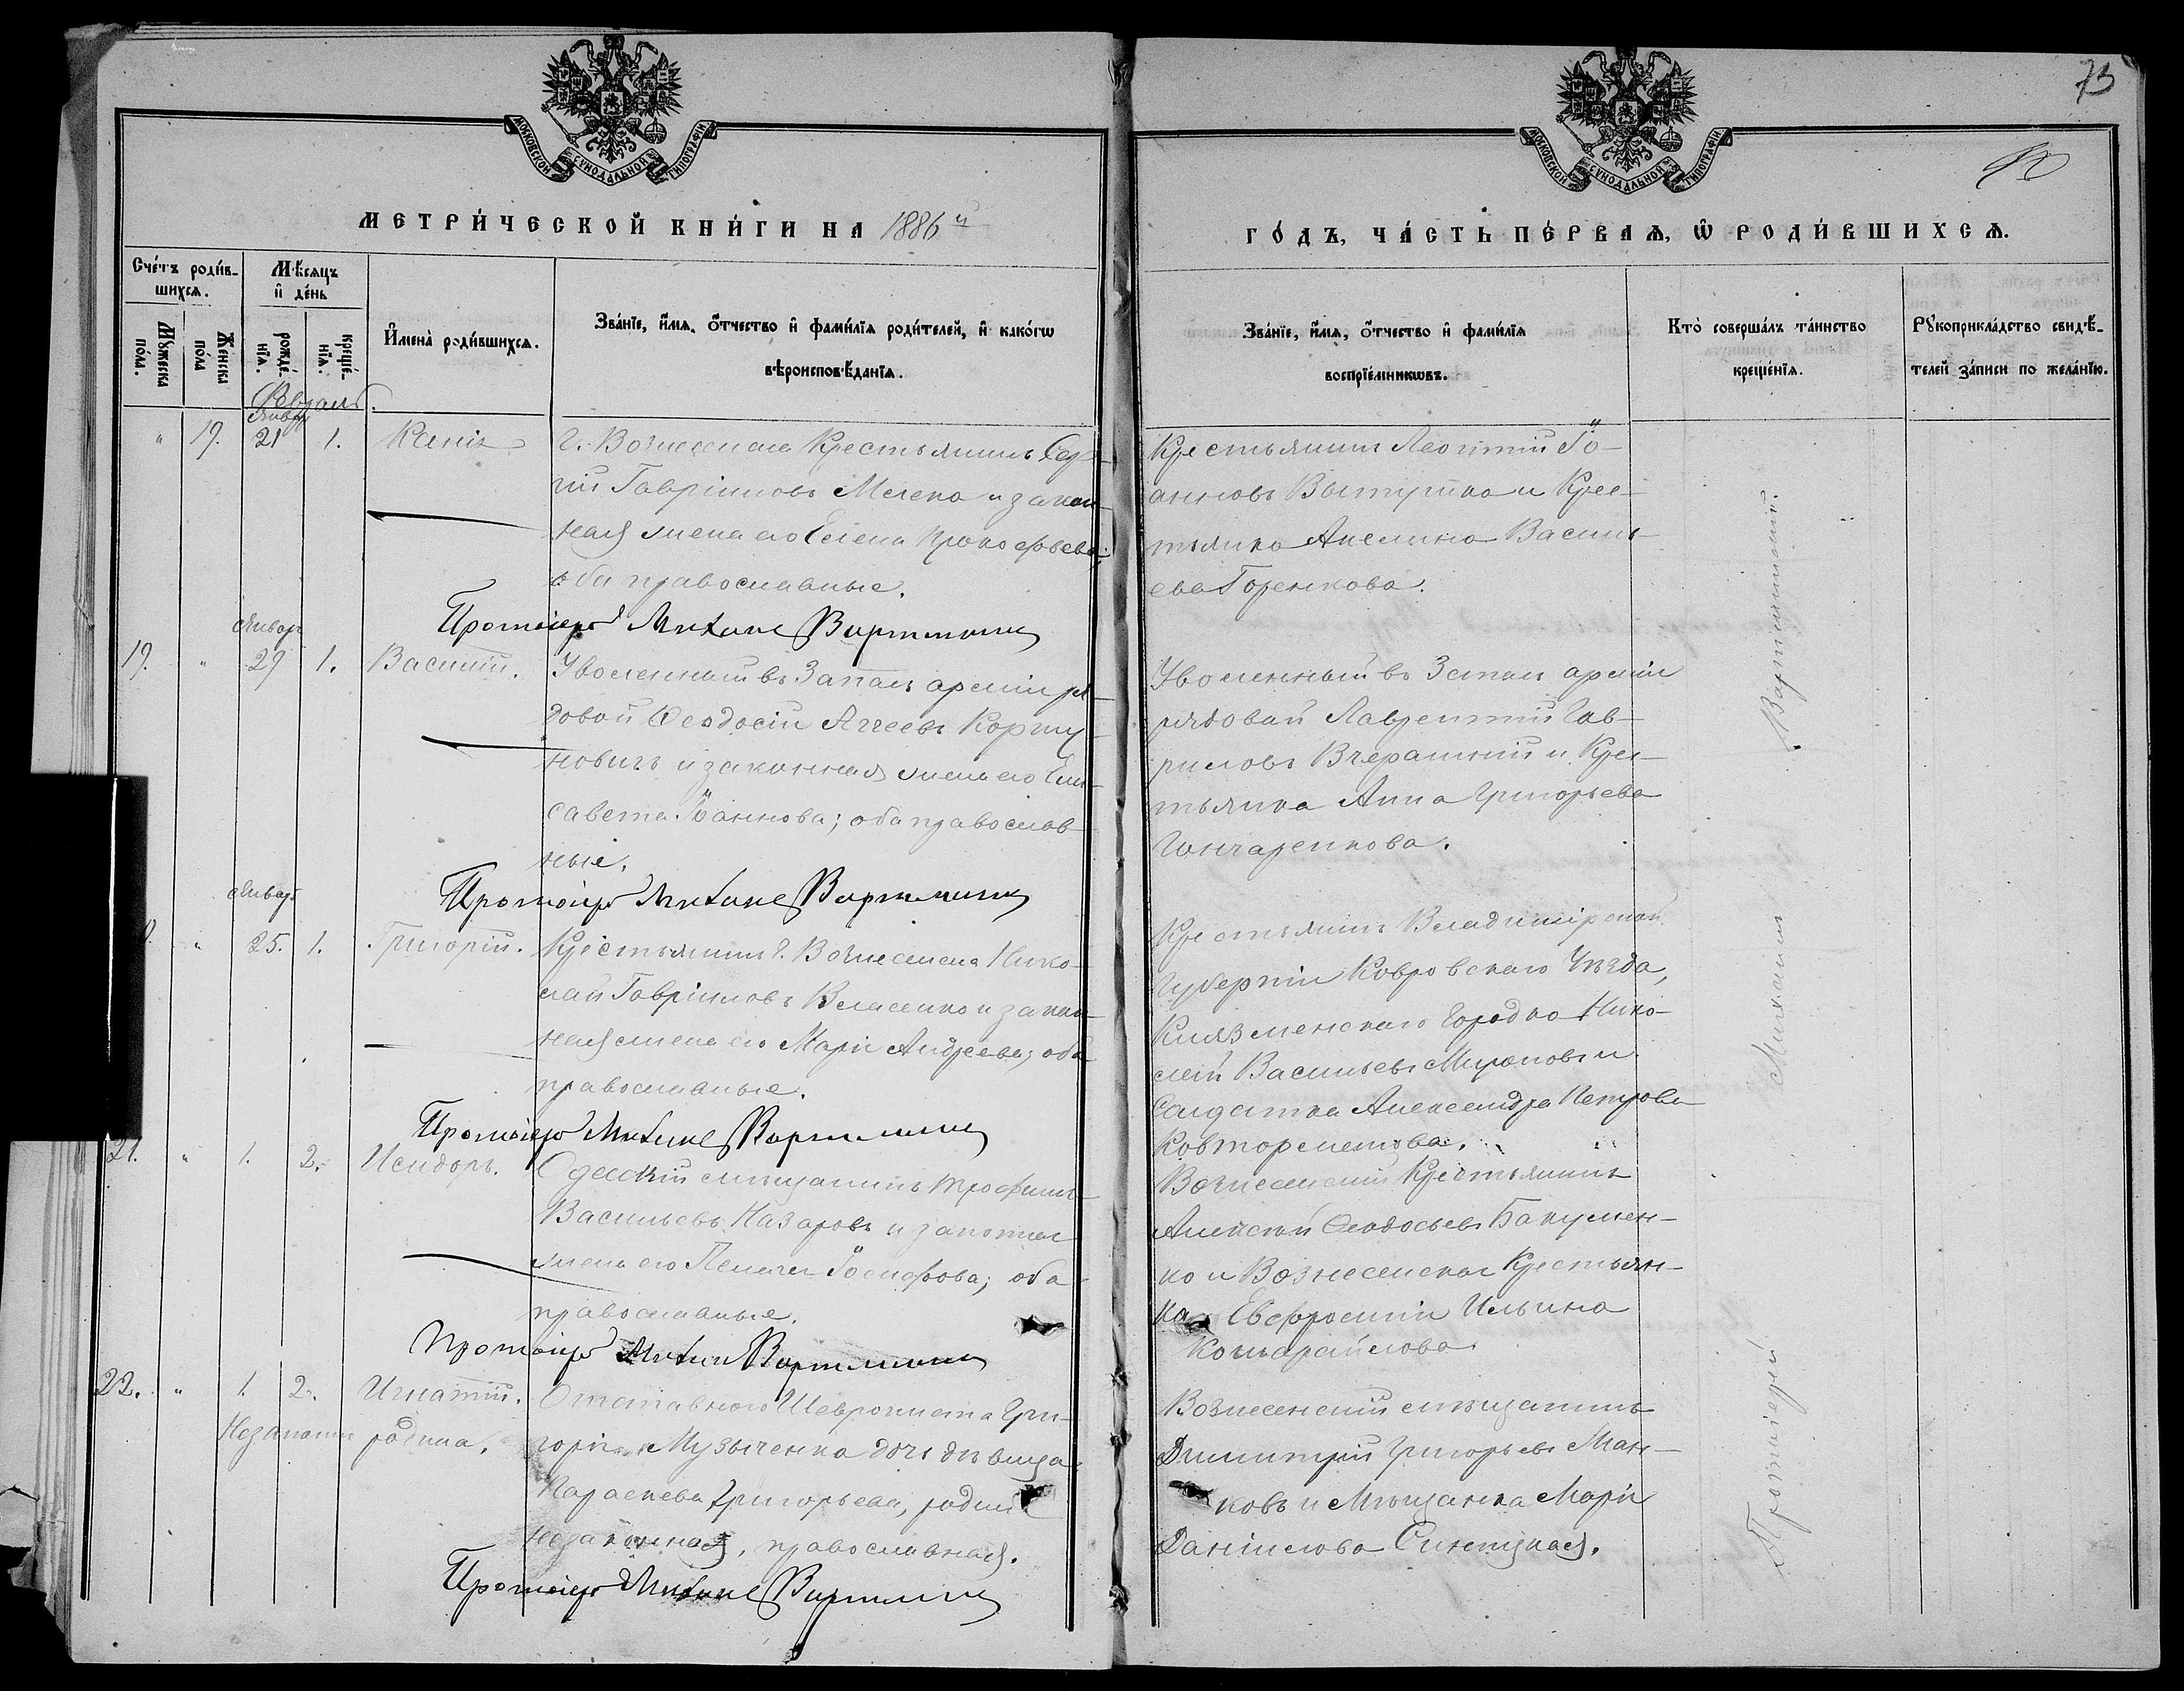 73
МОСКОВСКОЙ СѴНОДАЛЬНОЙ ТИПОГРАФІИ
МОСКОВСКОЙ СѴНОДАЛЬНОЙ ТИПОГРАФІИ
МЕТРИ́ЧЕСКОЙ КНИ́ГИ НА 1886 й
ГО́ДЪ, ЧА́СТЬ ПЕ́РВАѦ, Ѡ РОДИ́ВШИХСѦ.
Сче́тъ роди́в-
шихсѧ.
Мѣ́сѧцъ
и҆ де́нь
Мꙋ́жеска по́ла.
Же́нска по́ла
рожде́-нїѧ.
креще́-нїѧ.
И҆мена̀ роди́вшихсѧ.
Зва́нїе, и҆́мѧ, ѻ҆́тчество и҆ фами́лїѧ роди́телей, и҆ како́гѡ
вѣроисповѣ́данїѧ.
Зва́нїе, и҆́мѧ, ѻ҆́тчество и҆ фами́лїѧ
воспрїе́мникѡвъ.
Кто̀ соверша́лъ та́инство
креще́нїѧ.
Рꙋкоприкла́дство свидѣ́-
телей за́писи по жела́нїю.
Февраль.
Январ
" 19. 21 1. Ксенія
г. Вознесенска Крестьянинъ Сер-
гій Гавріиловъ Мелеко и закон-
ная жена его Елена Прокофьева;
оба православные.
Протоіерей Михаилъ Вартминскій
Крестьянинъ Леонтій Іо-
анновъ Вытупко и Крес-
тьянка Акелина Василь-
ева Горенкова.
Январ
19. " 29 1. Василій.
Уволенный въ Запасъ арміи ря-
довой Феодосій Аггеевъ Корту-
новичъ и законная жена его Ели-
савета Іоаннова; оба православ-
ные.
Протоіерей Михаилъ Вартминскій
Уволенный въ Запасъ арміи
рядовой Лаврентій Гав-
риловъ Вчерашній и Крес-
тьянка Анна Григорьева
Гончаренкова.
Январ
" 25. 1. Григорій.
Крестьянинъ г. Вознесенска Нико-
лай Гавріиловъ Власенко и закон-
ная жена его Марія Андреева; оба
православные.
Протоіерей Михаилъ Вартминскій
Крестьянинъ Владимірской
Губерніи Ковровскаго Уѣзда,
Клязменскаго Городка Нико-
лай Васильевъ Мироновъ и
Солдатка Александра Петрова
21. " 1. 2. Исидоръ.
Одесскій мѣщанинъ Трофимъ
Васильевъ Назаровъ и законная
жена его Пелагія Іосифова; оба
православные.
Протоіерей Михаилъ Вартминскій
Вознесенскій Крестьянинъ
Алексѣй Феодосьевъ Бакумен-
ко и Вознесенская Крестьян-
ка Евфросинія Ильина
22. " 1. 2. Игнатій.
Незаконно родила.
Отставного Шеврониста Гри-
горія Музыченка дочь дѣвица
Параскева Григорьева,
незаконная, православная.
Протоіерей Михаилъ Вартминскій
Вознесенскій мѣщанинъ
Димитрій ГригорьевъМан-
ковъ и Мѣщанка Марія
Даніилова Синицкая.
Протоіерей Михаилъ Вартминскій.